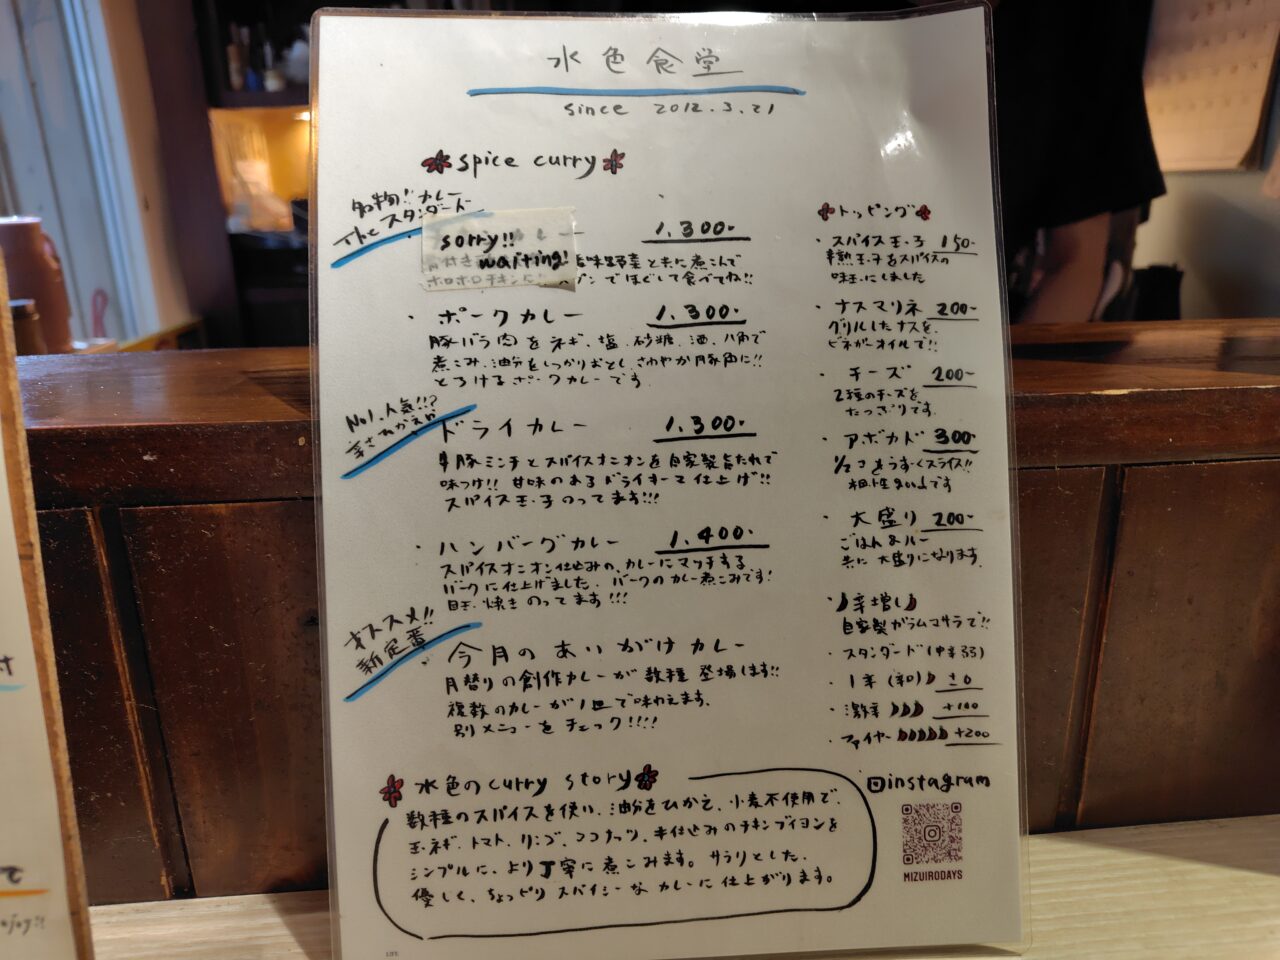 水色食堂
since 2012.3.21
spice curry
名物!! カレー
The スタンダード
カレー 1,300-
sorry!!
waiting!
香味野菜と共に煮こんで
ホロホロチキン スプーンでほぐして食べてね!!
・ポークカレー 1,300-
豚バラ肉をネギ、塩、砂糖、酒、八角で
煮こみ、油分をしっかりおとし、さわやか豚角に!!
とろけるポークカレーです
No1.人気!!?
・ドライカレー 1,300-
豚ミンチとスパイスオニオンを自家製旨たれで
味つけ!! 甘味のあるドライキーマ仕上げ!!
スパイス玉子のってます!!!
・ハンバーグカレー 1,400-
スパイスオニオン仕込みの、カレーにマッチする
バーグに仕上げました。バーグのカレー煮こみです!
目玉焼きのってます!!!
オススメ!!
新定番
今月のあいがけカレー
月替りの創作カレーが数種登場します!!
複数のカレーが1皿で味わえます。
別メニューをチェック!!!!
トッピング
・スパイス玉子 150-
半熟玉子をスパイスの
味玉にしました
・ナスマリネ 200-
グリルしたナスを、
ビネガーオイルで!!
・チーズ 200-
2種のチーズを
たっぷりです。
・アボカド 300-
1/2コをうすーくスライス!!
相性goodです
・大盛り 200-
ごはん&ルー
共に大盛りになります。
辛増し
自家製ガラムマサラで!!
・スタンダード(中辛弱)
・1辛(和) ±0
・激辛 +100
・ファイヤー +200
水色のcurry story
数種のスパイスを使い、油分をひかえ、小麦不使用で、
玉ネギ、トマト、リンゴ、ココナッツ、半仕込みのチキンブイヨンを
シンプルに、より丁寧に煮こみます。サラリとした、
優しく、ちょっぴりスパイシーなカレーに仕上がります。
instagram
MIZUIRODAYS